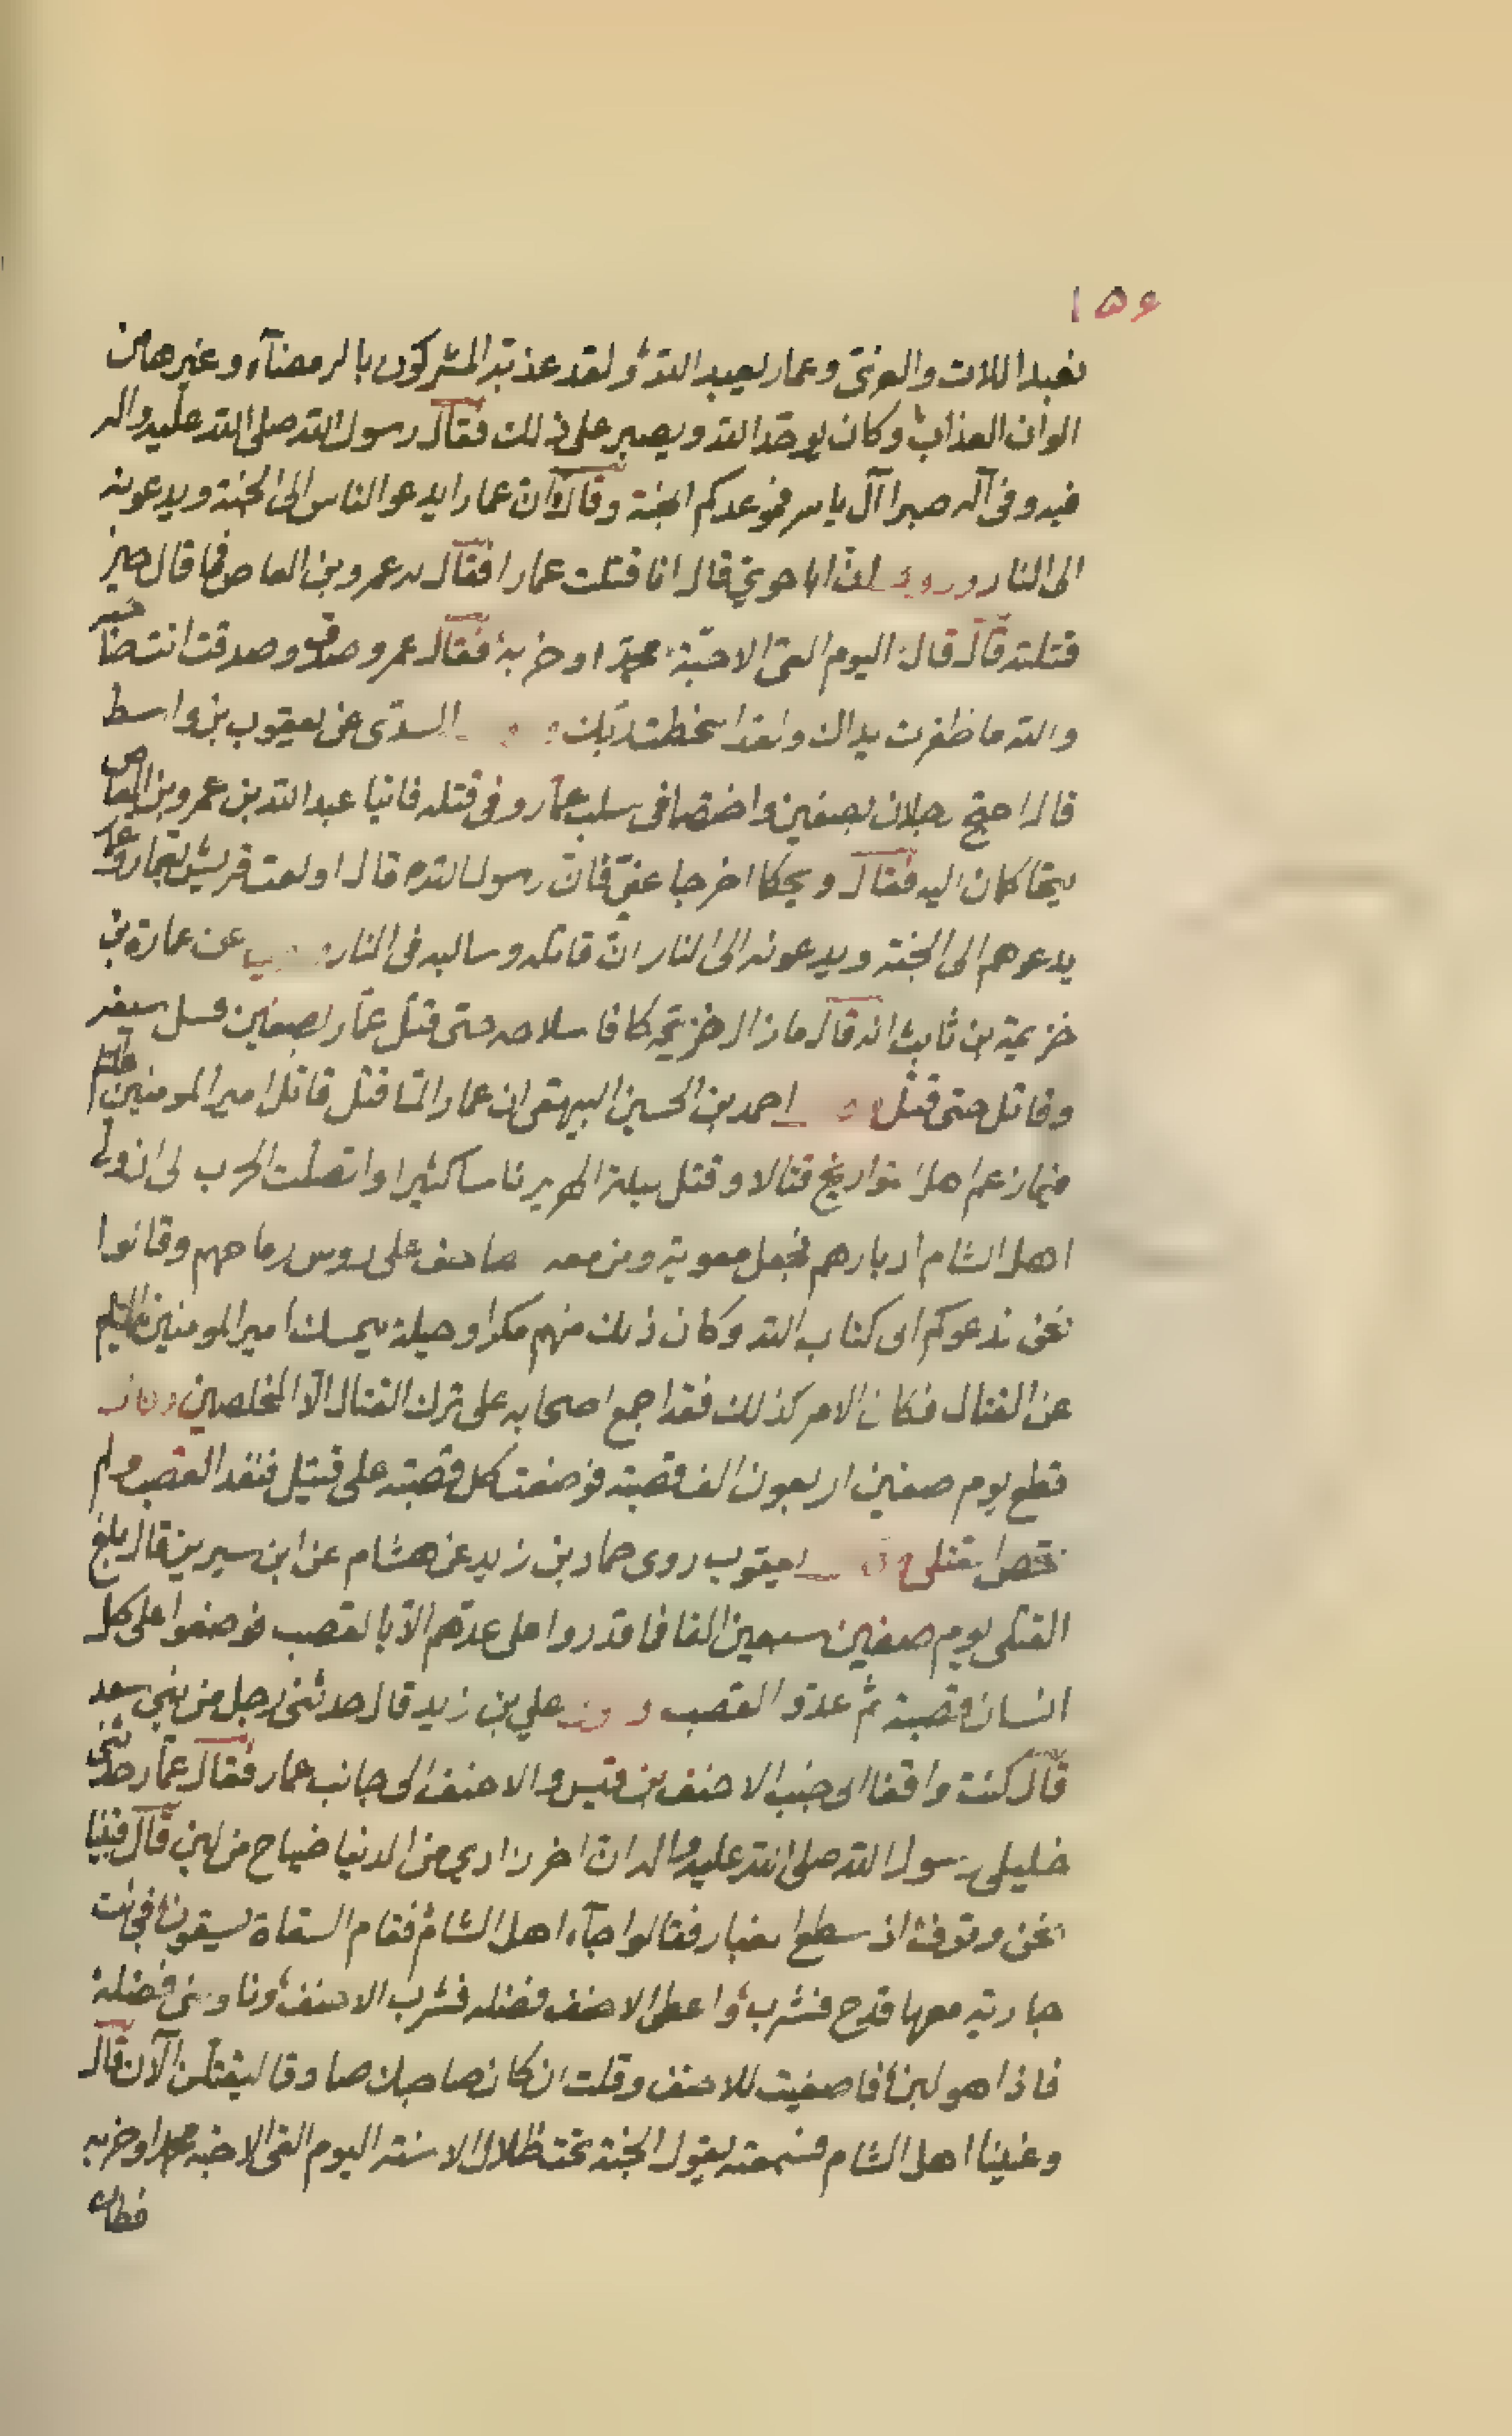 ١٥٤
نعبد اللات والعزى وعمار يعبد الله ولقد عذبته المشركون بالرمضآء وغيرها من
الوان العذاب وكان يوحد الله ويصبر على ذلك فقال رسول الله صلى الله عليه واله
فيه وفى آله صبرا آل ياسر فموعدكم الجنة وقال ان عمارا يدعو الناس الى الجنة ويدعونه
الى النار وروى ان ابا حوى قال انا قتلت عمارا فقال له عمرو بن العاص فما قال حين
قتلته قال قال اليوم القى الاحبة محمدا وحزبه فقال عمرو صدقت وصدقت انت صاحبه
والله ما ظفرت يداك ولقد اسخطت ربك السدى عن يعقوب بن واسط
قال احتج رجلان بصفين واختصما فى سلب عمار وفى قتله فاتيا عبد الله بن عمرو بن العاص
يتحاكمان اليه فقال ويحكما اخرجا عنى فان رسول الله قال اولعت قريش بعمار وعمار
يدعوهم الى الجنة ويدعونه الى النار ان قاتله وسالبه فى النار عن عمارة بن
خزيمة بن ثابت انه قال ما زال خزيمة كافا سلاحه حتى قتل عمار بصفين فسل سيفه
وقاتل حتى قتل احمد بن الحسين البيهقى ان عمارا لما قتل قاتل امير المومنين
فيما زعم اهل التواريخ قتالا وقتل ليلة الهرير ناسا كثيرا واتصلت الحرب الى ان ولى
اهل الشام ادبارهم فجعل معوية ومن معه المصاحف على روس رماحهم وقالوا
نحن ندعوكم الى كتاب الله وكان ذلك منهم مكرا وحيلة ليمسك امير المومنين
عن القتال فكان الامر كذلك فقد اجمع اصحابه على ترك القتال الا المخلصين
قطع يوم صفين اربعون الف قصبة فوضعت كل قصبة على قتيل فنفد القصب ولم
تحص القتلى يعقوب روى حماد بن زيد عن هشام عن ابن سيرين قال بلغ
القتلى يوم صفين سبعين الفا فما قدروا على عدهم الا بالقصب فوضعوا على كل
انسان قصبة ثم عدوا القصب وعن علي بن زيد قال حدثنى رجل من بني سعد
قال كنت واقفا الى جنب الاحنف بن قيس والاحنف الى جانب عمار فقال عمار حدثنى
خليلى رسول الله صلى الله عليه واله ان اخر زادي من الدنيا ضياح من لبن قال فبينا
نحن وقوف اذ سطع الغبار فقالوا جآء اهل الشام فقام السقاة يسقون فجائت
جارية معها قدح فشرب واعطى الاحنف فضله فشرب الاحنف وناولنى فضله
فاذا هو لبن فاصغيت للاحنف وقلت ان كان صاحبك صادقا ليقتلن الآن قال
وغشينا اهل الشام فسمعته يقول الجنة تحت ظلال الاسنة اليوم القى الاحبه محمدا وحزبه